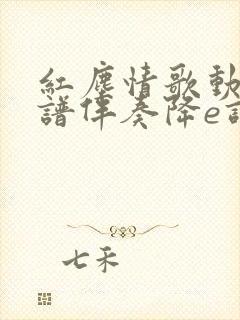 紅塵情歌動
譜伴奏降e
七禾